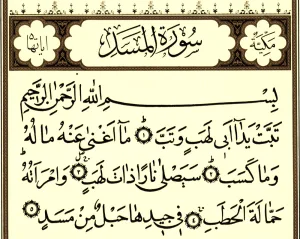 مكية سورة المسد آياتها ٥
بِسْمِ اللّٰهِ الرَّحْمٰنِ الرَّحِيْمِ
تَبَّتْ يَدَآ اَبِيْ لَهَبٍ وَّتَبَّ ۝١ مَآ اَغْنٰى عَنْهُ مَالُهٗ
وَمَا كَسَبَ ۝٢ سَيَصْلٰى نَارًا ذَاتَ لَهَبٍ ۝٣ وَّامْرَاَتُهٗ
حَمَّالَةَ الْحَطَبِ ۝٤ فِيْ جِيْدِهَا حَبْلٌ مِّنْ مَّسَدٍ ۝٥